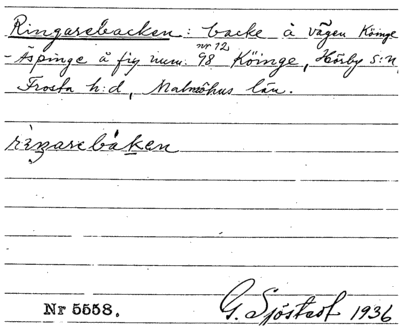 Ringarebacken: backe å vägen Köinge
nr 12
- Äspinge å fig num. 98 Köinge, Hörby s:n,
Frosta h:d, Malmöhus län.
riŋarebaken
Nr 5558. G. Sjöstedt 1936